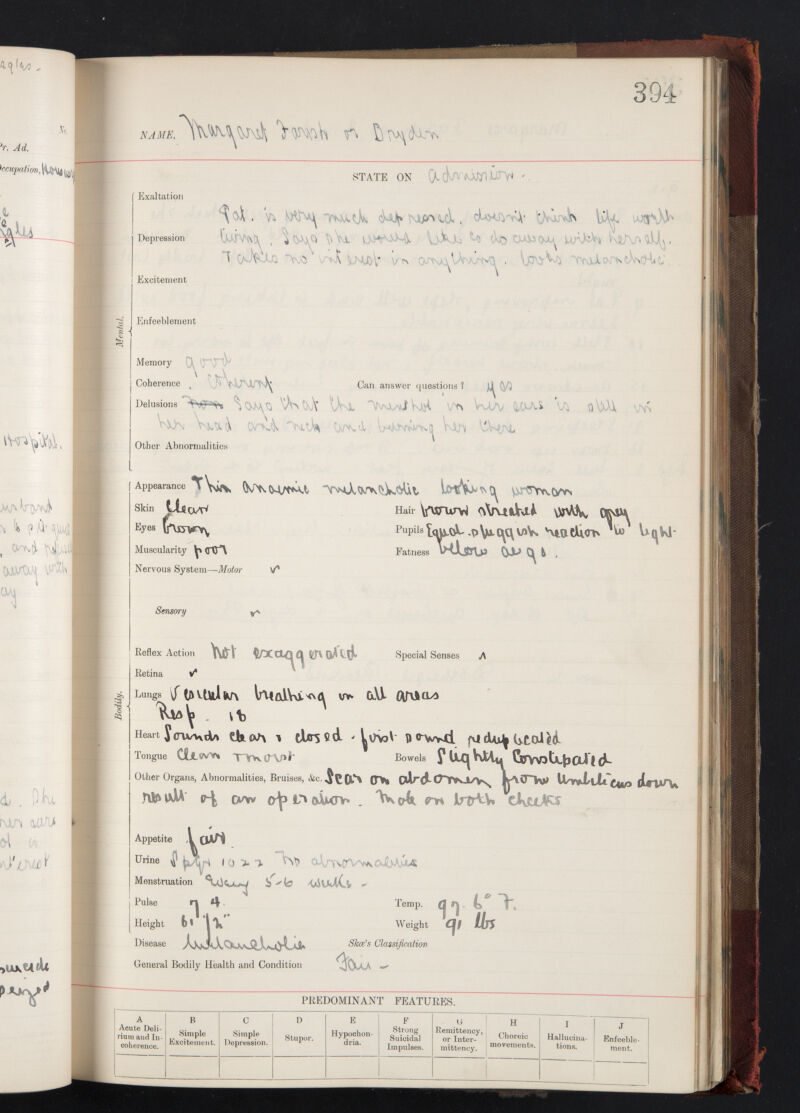 394
NAME. Margaret Farish or Dryden
STATE ON admission.
Mental.
Exaltation
Pat. is very much depressed, doesn't think life worth
Depression living. Says she would like to do away with herself.
Takes no interest in anything. looks melancholic.
Excitement
Enfeeblement
Memory good
Coherence. Coherent Can answer questions? yes
Delusions Says that the menthol in her ears is still in
her head and neck and burning her there
Other Abnormalities
Bodily.
Appearance Thin anaemic melancholic looking woman
Skin Clear Hair brown streaked with grey
Eyes brown Pupils Equal. sluggish reaction to light.
Muscularity poor Fatness below avge.
Nervous System—Motor ✓
Sensory ✓
Reflex Action not exaggerated Special Senses
Retina ✓
Lungs Vesicular breathing on all areas
Resp. 18
Heart Sounds clear & closed. first sound reduplicated
Tongue Clean + moist Bowels Slightly Constipated
Other Organs, Abnormalities, Bruises, &c. Scar on abdomen from Umbilicus down
result of an operation. Mole on both cheeks
Appetite fair
Urine Sp gr 1022 No abnormalities
Menstruation Every 5-6 weeks -
Pulse 74. Temp. 97.6° F.
Height Weight 91 lbs
Disease Melancholia Skae's Classification
General Bodily Health and Condition Fair -
PREDOMINANT FEATURES.
A B C D E F G H I J
Acute Delirium and Incoherence. Simple Excitement. Simple Depression. Stupor. Hypochondria. Strong Suicidal Impulses. Remittency, or Intermittency. Choreic movements. Hallucinations. Enfeeblement.